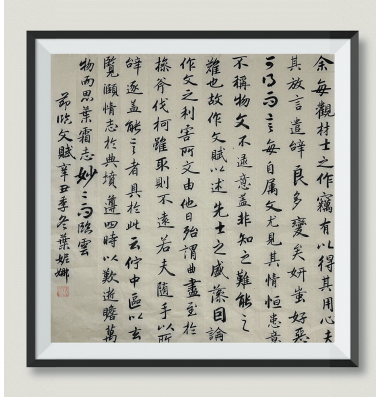 余每觀材士之作竊有以得其用心夫
其放言遣辭良多變矣妍蚩好惡
可得而言每自屬文尤見其情恒患意
不稱物文不逮意蓋非知之難能之
難也故作文賦以述先士之盛藻因論
作文之利害所文由他日殆謂曲盡至於
操斧伐柯雖取則不遠若夫隨手以所
辭逐蓋能言者具於此云佇中區以玄
覽頤情志於典墳遵四時以歎逝瞻萬
物而思葉霜志妙〻而臨雲
節臨文賦辛丑季冬葉娜